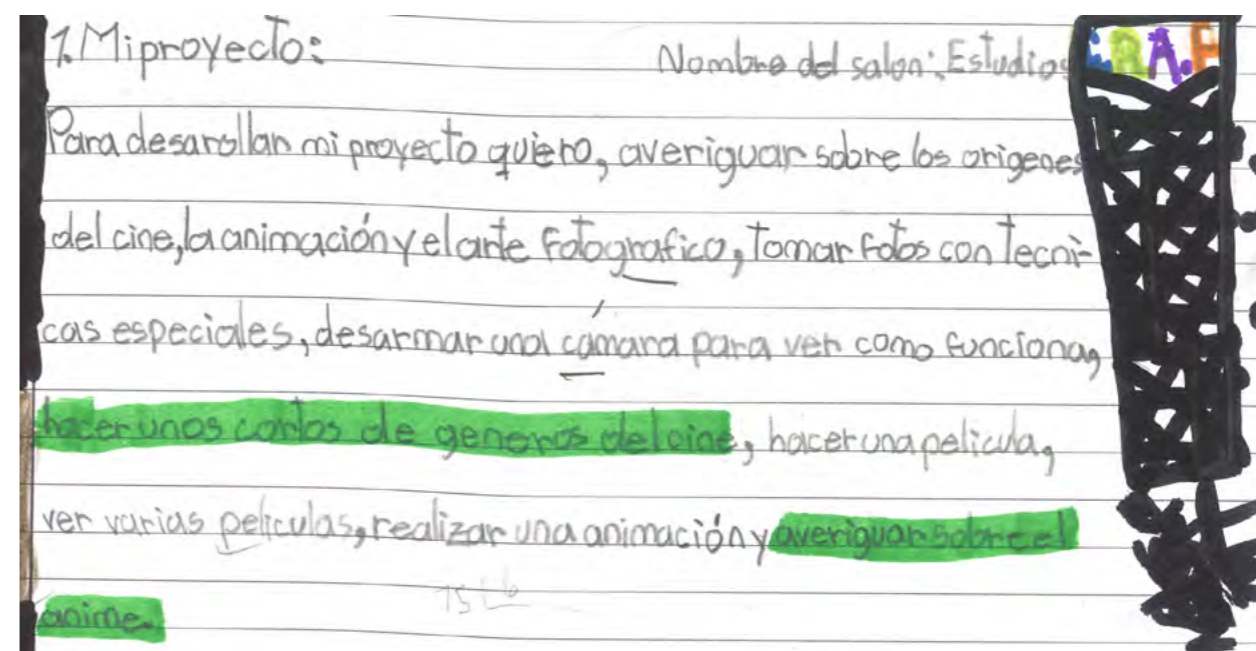 1. Mi proyecto: Nombre del salon: Estudios E.R.A.F
Para desarollar mi proyecto quiero, averiguar sobre los origenes
del cine, la animación y el arte fotografico, tomar fotos con tecni-
cas especiales, desarmar una cámara para ver como funciona,
hacer unos cortos de generos del cine, hacer una pelicula,
ver varias peliculas, realizar una animación y averiguar sobre el
anime.